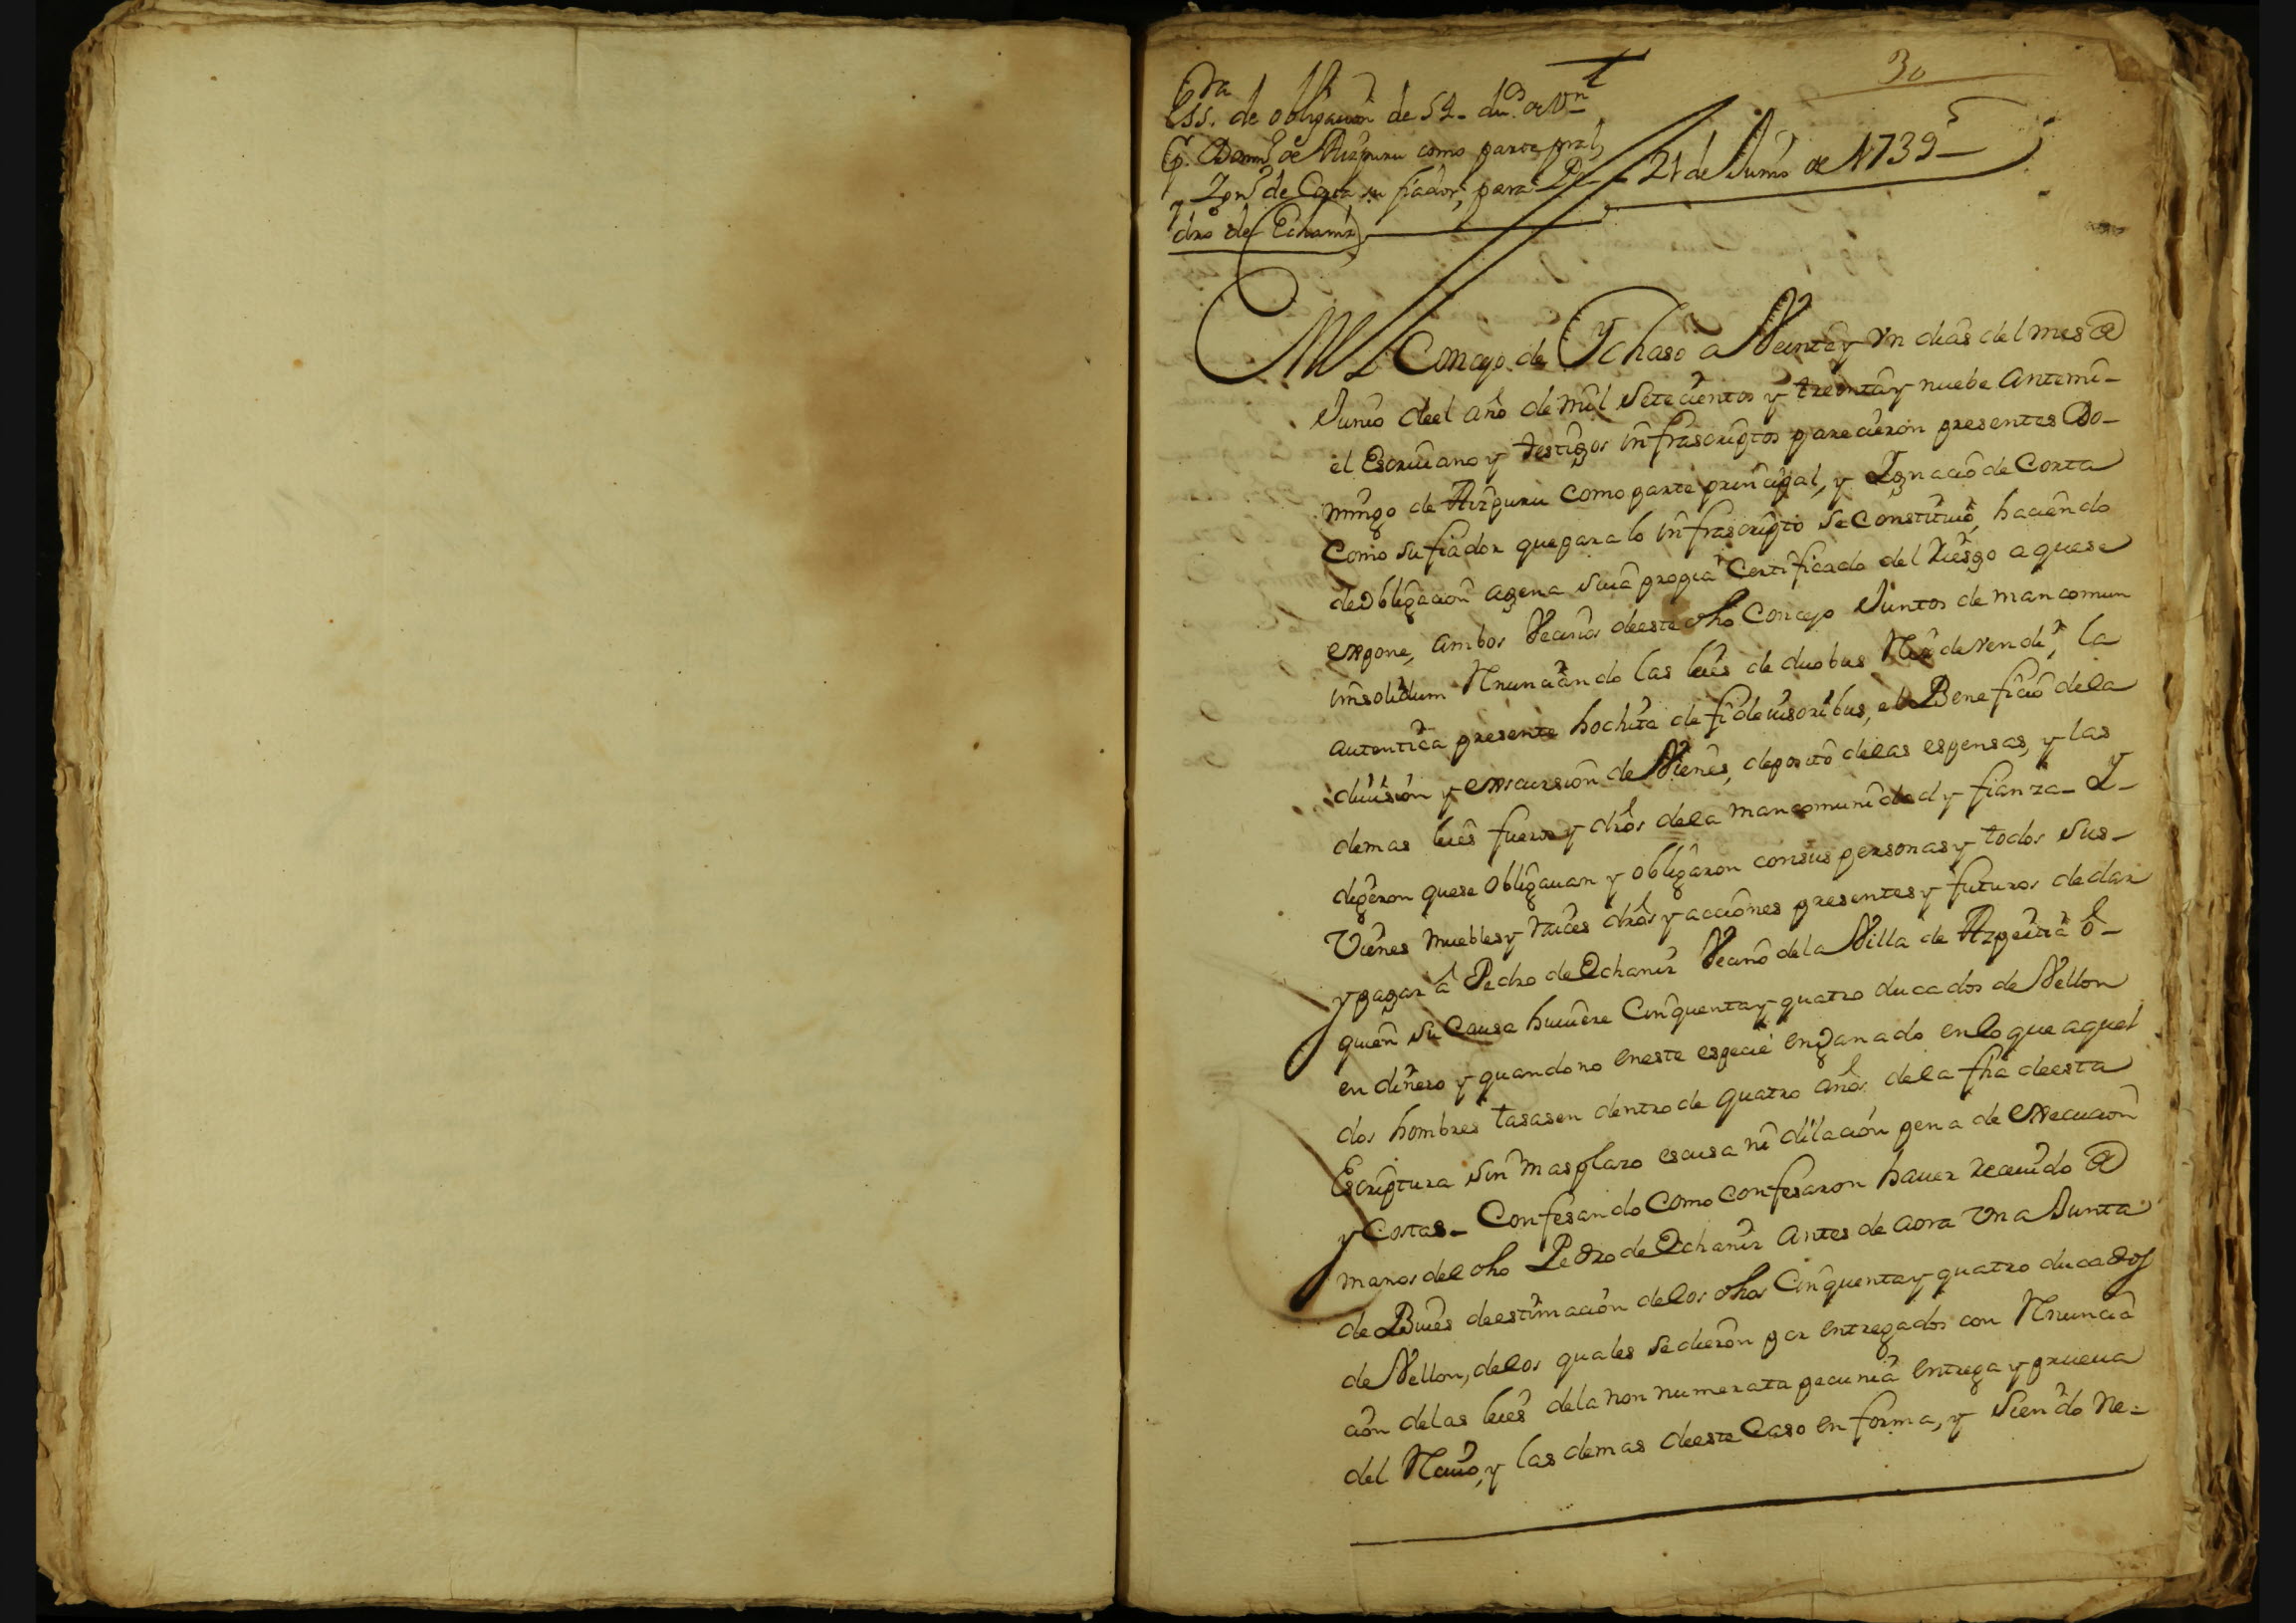 30
Ess.ra de obligacion de 54. du.os de V.n
p. Dom.o de Aizpuru como parte pral,
y Ign.o de Corta su fiador, para Pe- 21 de Junio de 1739
dro de Echaniz
En el Concejo de Ychaso a Veinte y Vn dias del mes de
Junio deel año de mil Setecientos y treinta y nuebe Antemi-
el Escriuano y testigos infrascriptos parecieron presentes Do-
mingo de Aizpuru como parte principal, y Ignacio de Corta
como su fiador que para lo infrascripto se constituió, haciendo
de Obligacion agena suia propia Certificado del Riesgo a que se
expone, ambos Vecinos deeste dho Concejo Juntos de mancomun
insolidum Rnunciando las leies de duobus Rex devendi, la
autentica presente hochita de fideiusoribus, el Beneficio dela
diuision y excursion de Vienes, deposito delas espensas, y las
demas leies fueros y dros dela mancomunidad y fianza- Y-
digeron que se obligauan y obligaron con sus personas y todos sus-
Vienes muebles y raices dros y acciones presentes y futuros de dar
y pagar â Pedro de Echaniz Vecino dela Villa de Azpeitia ô-
quien su Causa huuiere Cinquenta y quatro ducados de Vellon
en dinero y quando no eneste especie en ganado en lo que aquel
dos hombres tasasen dentro de quatro años dela fha deesta
Escriptura sin mas plazo escusa ni dilacion pena de execucion
y Costas- Confesando como confesaron hauer receuido de
manos del dho Pedro de Echaniz antes de aora Vna Junta
de Bueies deestimacion delos dhos Cinquenta y quatro ducados
de Vellon, delos quales se dieron por entregados con Rnuncia
cion delas leies dela non numerata pecunia entrega y prueua
del Reciuo, y las demas deeste Caso en forma, y siendo Ne-